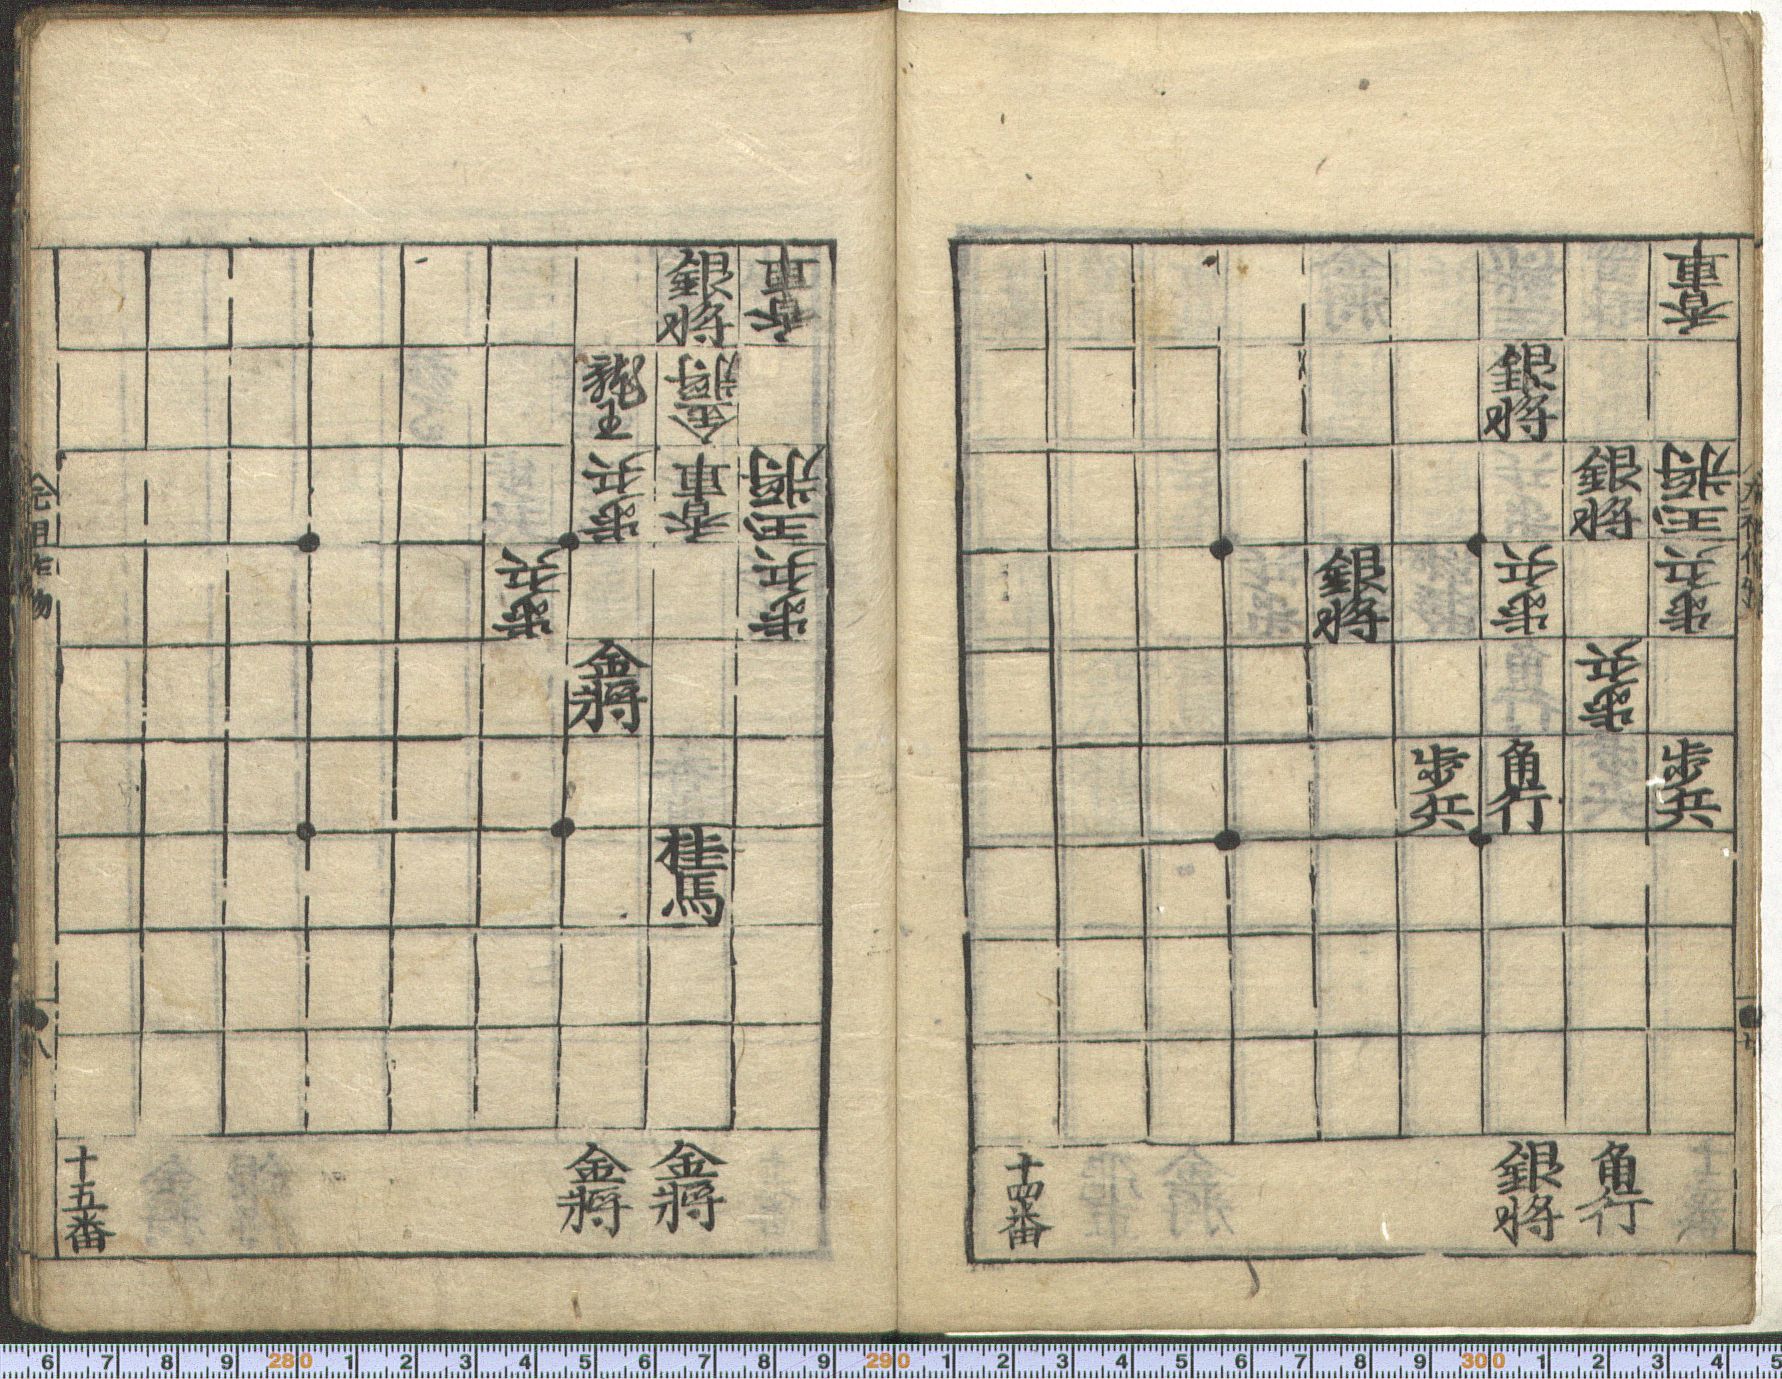 香車
王將
歩兵
歩兵
銀将
歩兵
角行
銀将
歩兵
角行
銀将
歩兵
銀将
十四番
香車
王將
歩兵
銀将
金將
香車
桂馬
金將
龍王
歩兵
金將
金將
歩兵
十五番
八
6 7 8 9 280 1 2 3 4 5 6 7 8 9 290 1 2 3 4 5 6 7 8 9 300 1 2 3 4 5